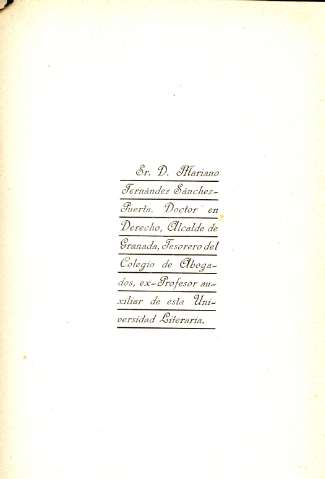 Sr. D. Mariano
Fernández Sánchez-
Puerta. Doctor en
Derecho, Alcalde de
Granada, Tesorero del
Colegio de Aboga-
dos, ex-Profesor au-
xiliar de esta Uni-
versidad Literaria.